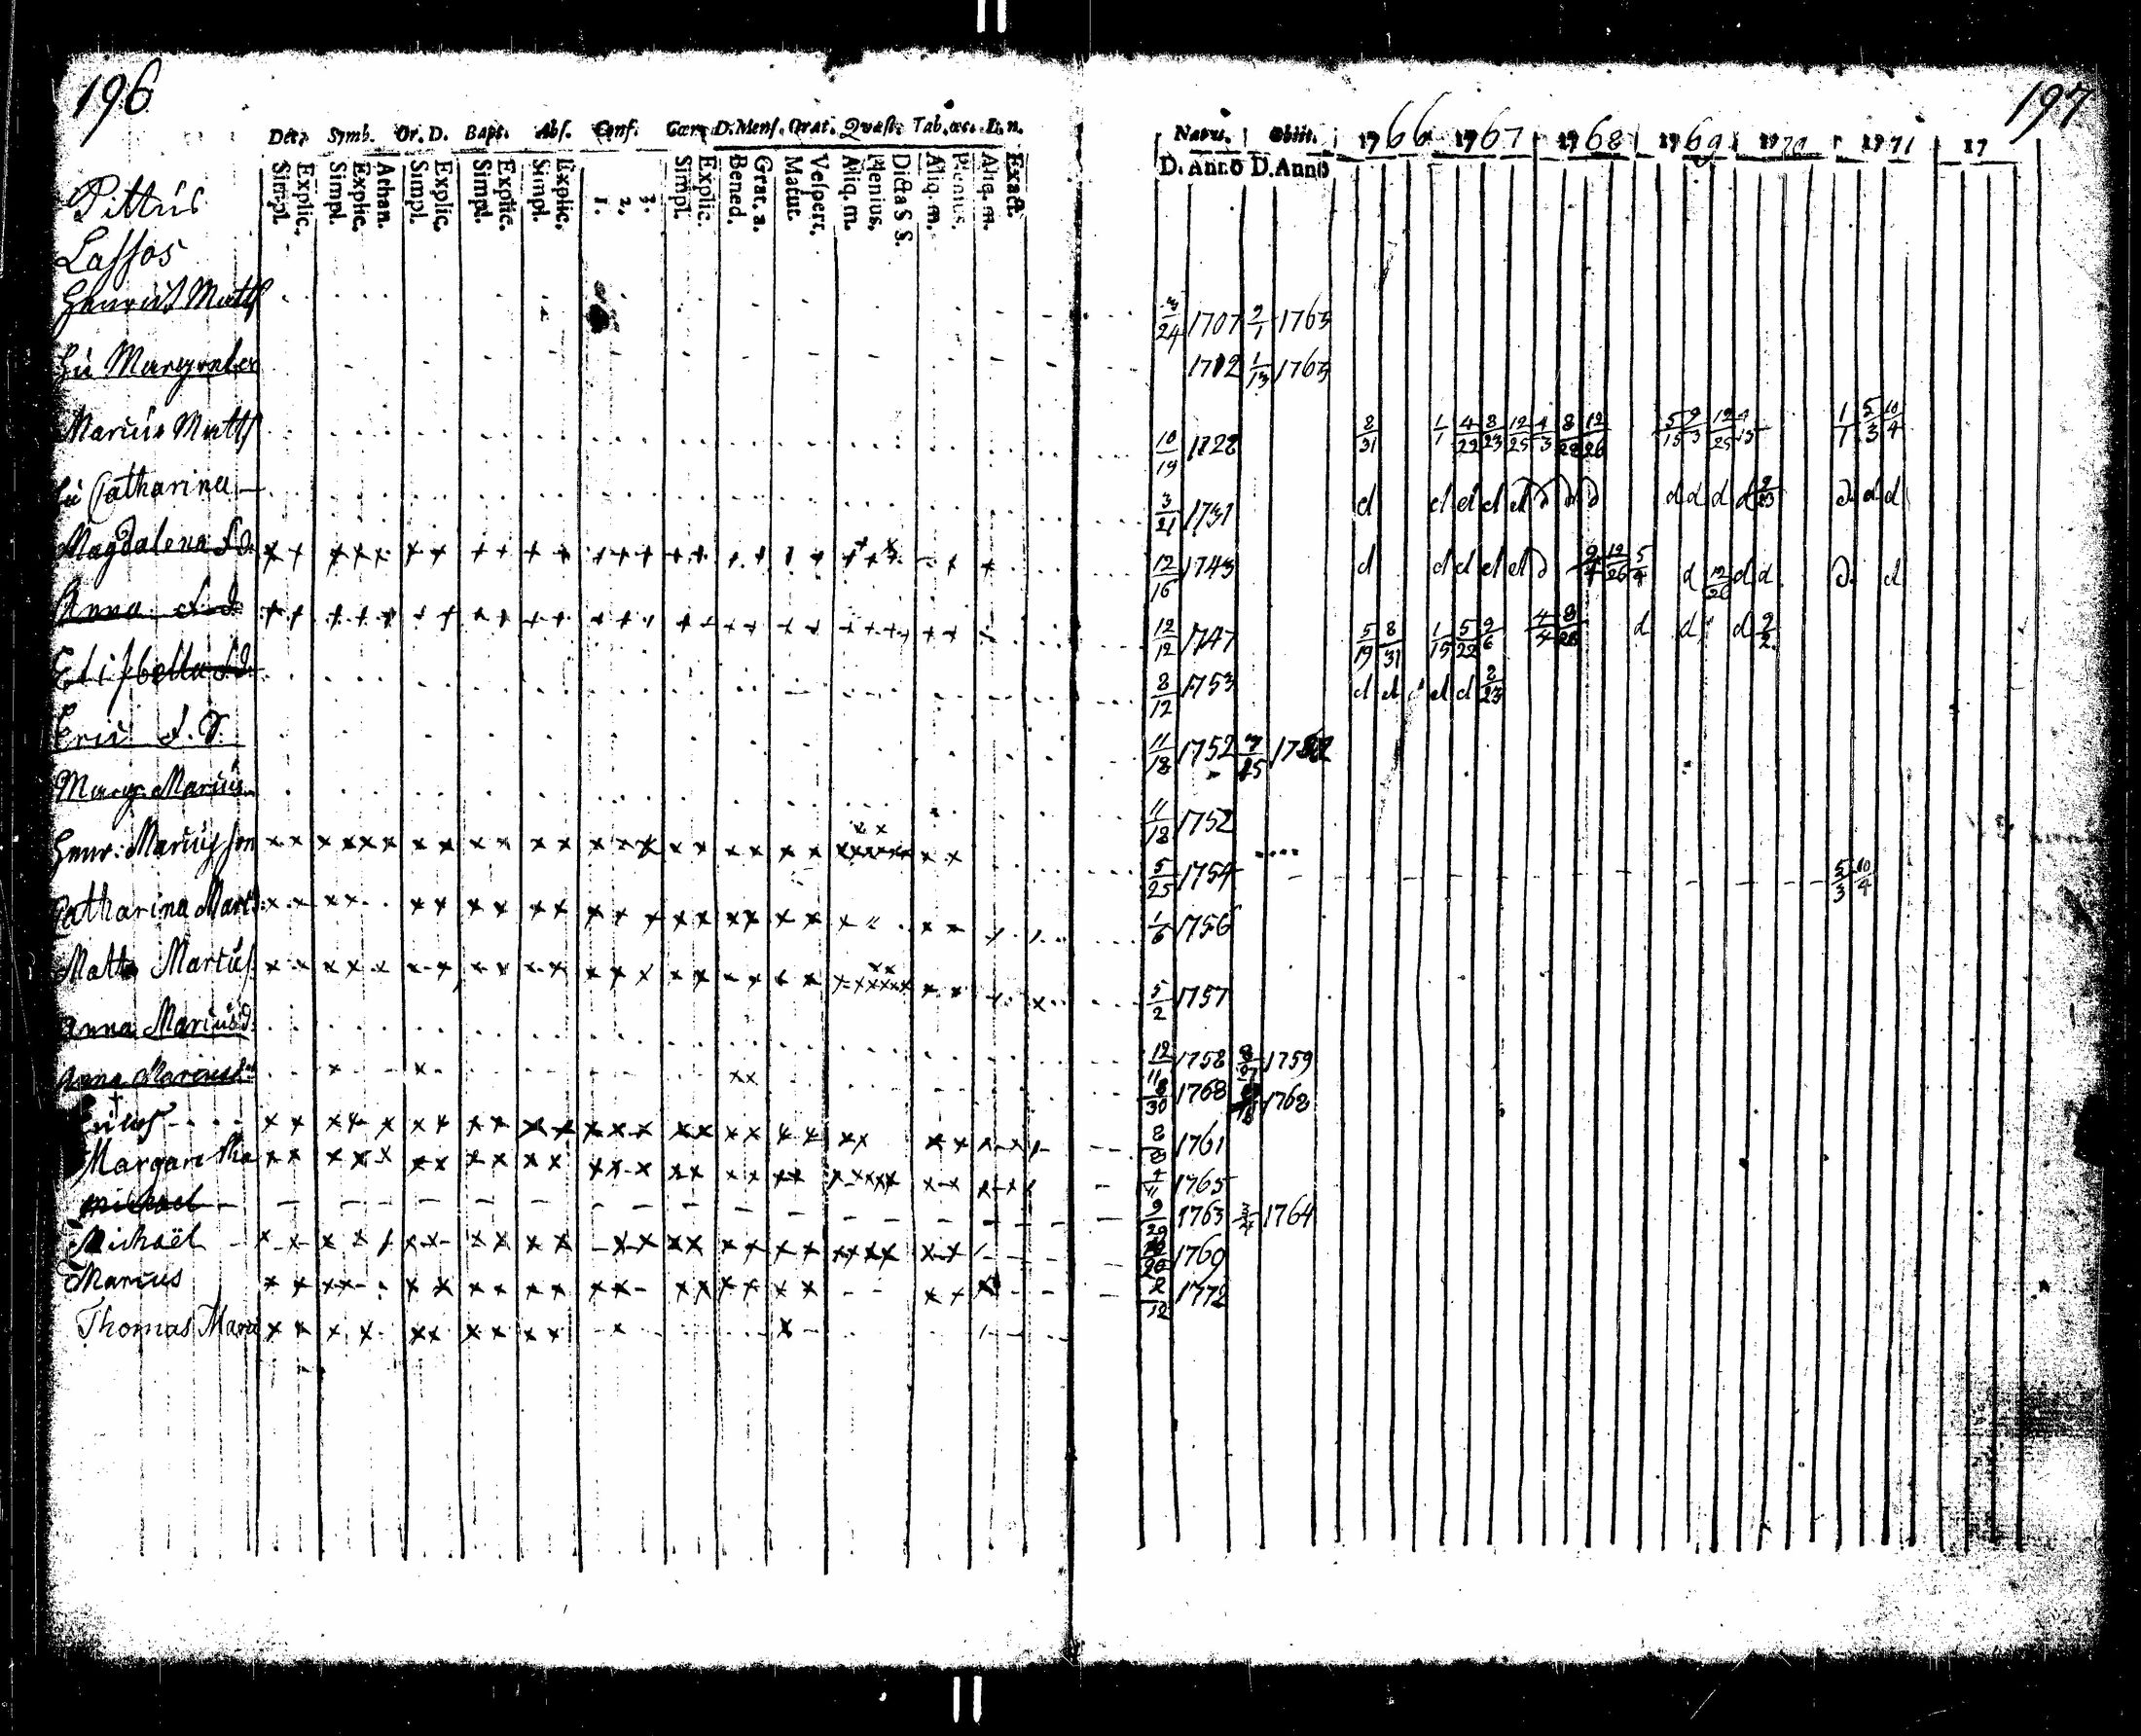 196
Dec. Symb. Or. D. Bapt. Abs. Conf. Cœn. D. Mens. Orat. Quæst. Tab. œc. D. n.
Simpl. Explic. Simpl. Explic. Athan. Simpl. Explic. Simpl. Explic. Simpl. Explic. 1. 2. 3. Simpl. Explic. Bened. Grat. a. Matut. Vespert. Aliq. m. Plenius. Dicta S S. Aliq. m. Plenius. Aliq. m. Exact.
Pittus
Lassos
Henrich Matts
hu Margareta
Marcus Matts
hu Catharina
Magdalena S.d.
Anna S.d.
Elisbetta S.d.
Eric S.S.
Marg. Marcus
Henr: Marcusson
Catharina Marc
Matts Marcus
Anna Marcusd.
Anna Marcusd
Margaretha
Michael
Michaël
Marcus
Thomas Marc
197
Natus. Obiit. 1766 1767 1768 1769 1770 1771 17
D. Anno D. Anno
3/24 1707 2/1 1763
1702 1/13 1763
10/19 1728 8/31 1/1 4/22 8/23 12/25 4/3 8/28 12/26 5/15 9/3 12/25 1/1 5/3 10/4
3/21 1731 d d d d d d d d d d d d d d d
12/16 1743 d d d d d d 12/26 5/4 d 12/26 d d d. d
12/12 1747 5/19 8/31 1/15 5/22 9/6 4/4 8/28 d d d 2/2
8/12 1753 d d d d d 8/23
11/18 1752
11/18 1752
5/25 1754 5/3 10/4
1/6 1756
5/2 1757
12/11 1758 1759
1768 1768
1761
1765
9/29 1763 3/4 1764
1769
1772